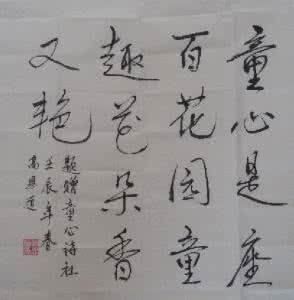 童心是座
百花园童
趣花朵香
又艳
题赠童心诗社
壬辰年春